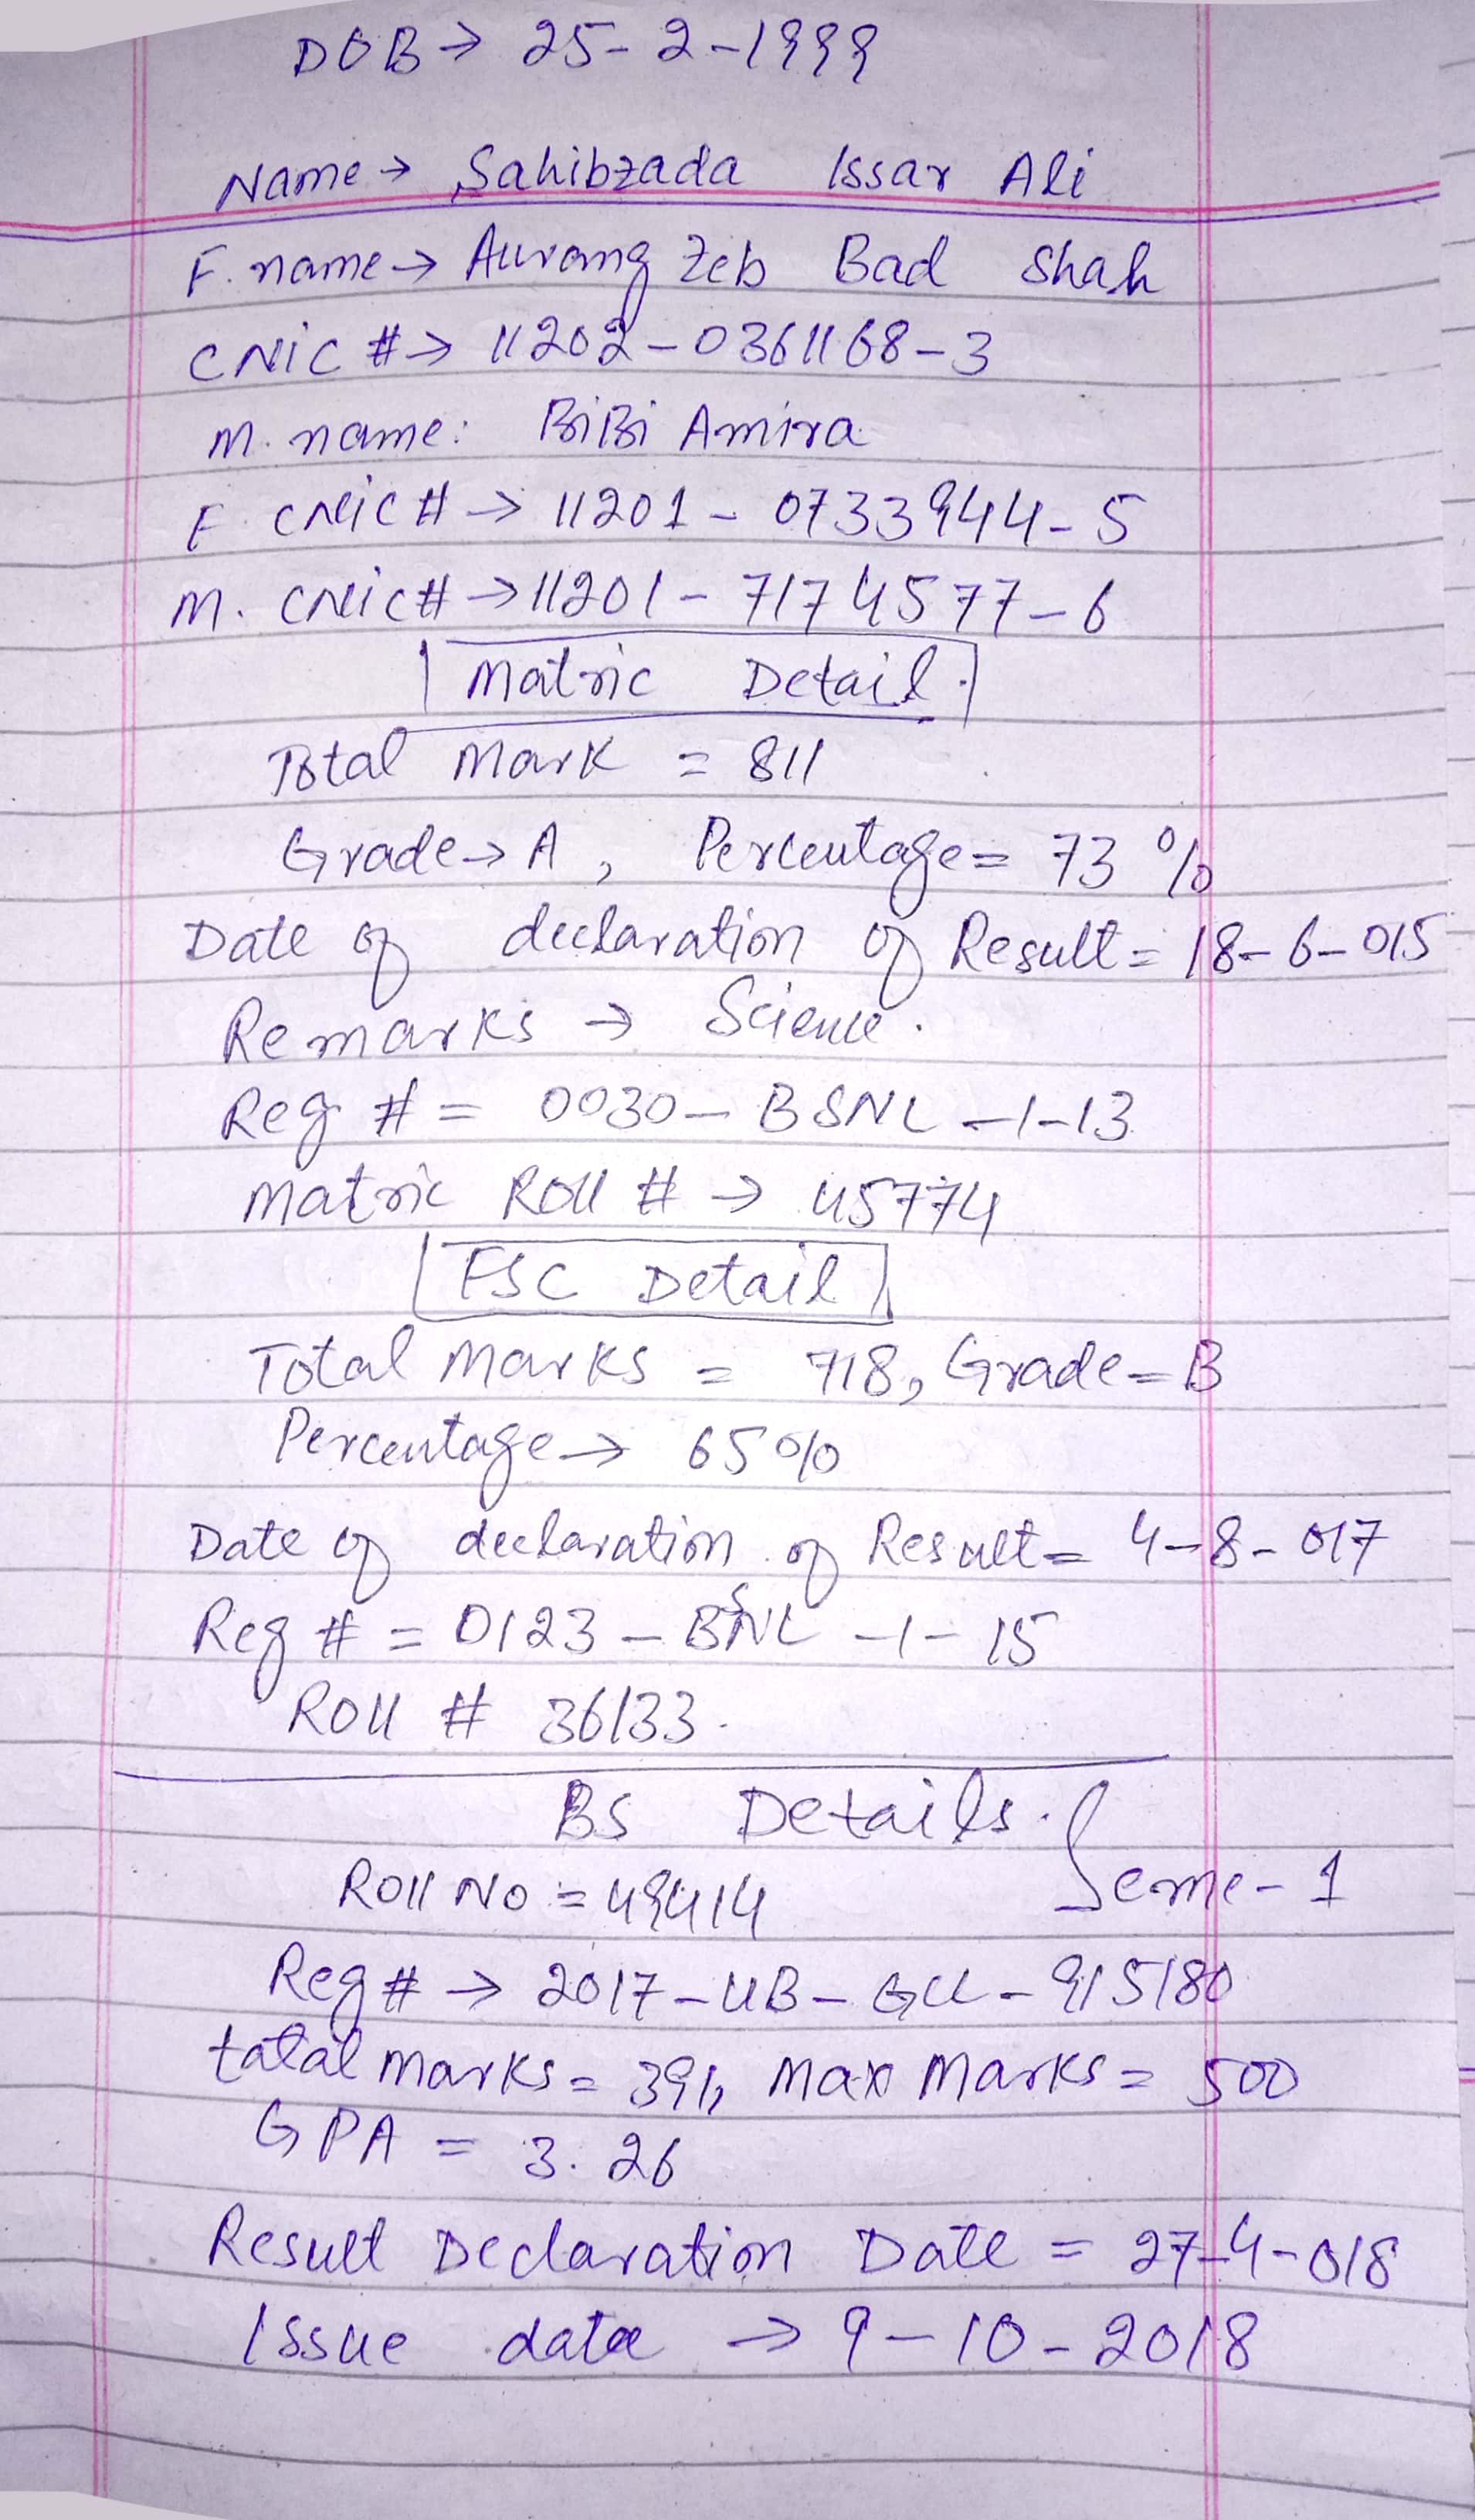 DOB → 25-2-1999
Name → Sahibzada Issar Ali
F. name → Aurang Zeb Bad Shah
CNIC # → 11202-0361168-3
M. name: BiBi Amira
F CNIC # → 11201-0733944-5
M. CNIC # → 11201-7174577-6
Matric Detail.
Total Mark = 811
Grade → A, Percentage = 73 %
Date of declaration of Result = 18-6-015
Remarks → Science.
Reg # = 0030-BSNL-1-13
Matric Roll # → 45774
FSC Detail
Total Marks = 718, Grade = B
Percentage → 65%
Date of declaration of Result = 4-8-017
Reg # = 0123-BSNL-1-15
Roll # 36133.
BS Details. Seme-1
Roll No = 49414
Reg # → 2017-UB-GU-915180
tatal marks = 391, Max Marks = 500
GPA = 3.26
Result Declaration Date = 27-4-018
Issue date → 9-10-2018